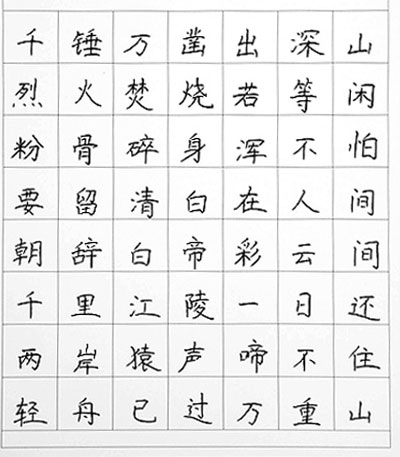 千锤万凿出深山
烈火焚烧若等闲
粉骨碎身浑不怕
要留清白在人间
朝辞白帝彩云间
千里江陵一日还
两岸猿声啼不住
轻舟已过万重山